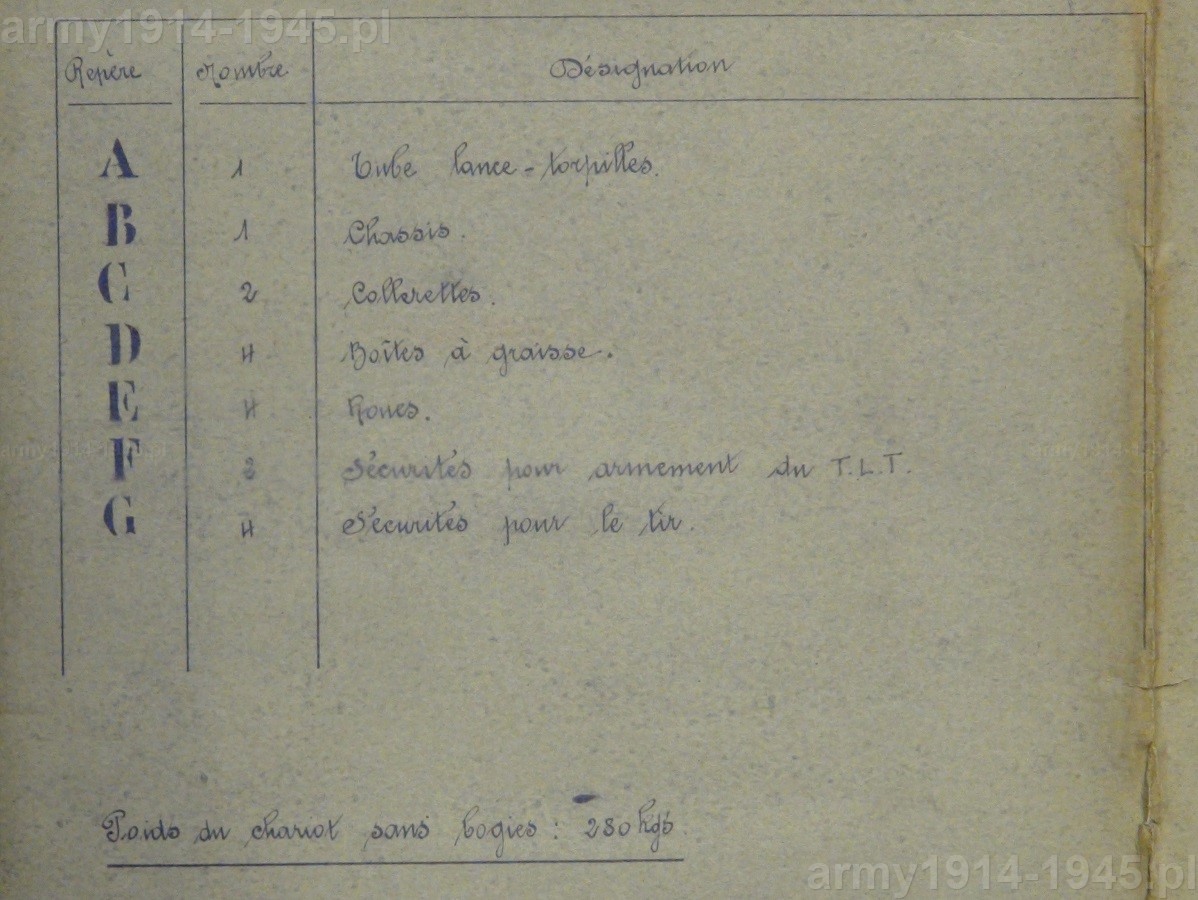 army1914-1945.pl
Repère Nombre Désignation
A 1 Tube lance-torpilles.
B 1 Chassis.
C 2 Collerettes.
D 4 Boîtes à graisse.
E 4 Roues.
army1914-1945.pl army1914-1945.pl
F 2 Sécurités pour armement du T.L.T.
G 4 Sécurités pour le tir.
Poids du chariot sans bogies : 280 kgs.
army1914-1945.pl